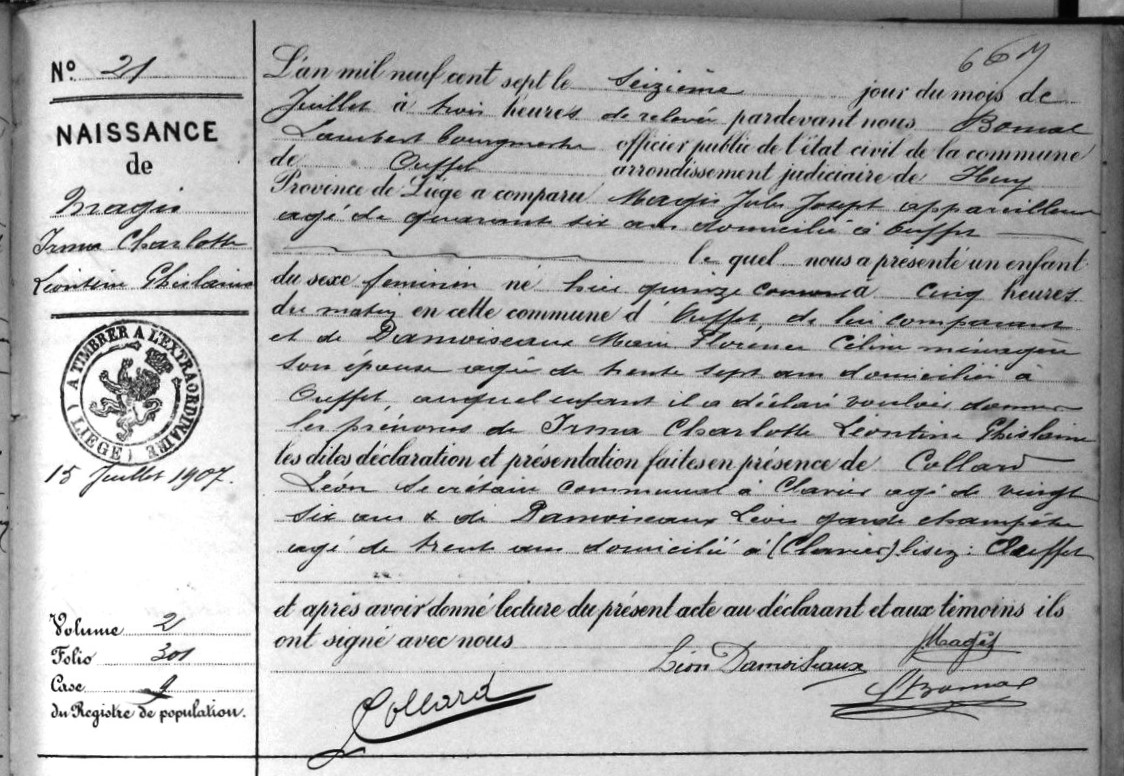 Nº 21
NAISSANCE
de
Magis
Irma Charlotte
Léontine Ghislaine
A TIMBRER A L'EXTRAORDINAIRE
(LIEGE)
15 Juillet 1907.
Volume 2
Folio 301
Case 9
du Registre de population.
667
L'an mil neuf cent sept le seizième jour du mois de
Juillet à trois heures de relevée pardevant nous Bomal
Lambert bourgmestre officier public de l'état civil de la commune
de Ouffet arrondissement judiciaire de Huy
Province de Liège a comparu Magis Jules Joseph appareilleur
agé de quarante six ans domicilié à Ouffet
le quel nous a présenté un enfant
du sexe féminin né hier quinze courant à cinq heures
du matin en cette commune d'Ouffet, de lui comparant
et de Damoiseaux Marie Florence Céline ménagère
son épouse agée de trente sept ans domiciliée à
Ouffet, auquel enfant il a déclaré vouloir donner
les prénoms de Irma Charlotte Léontine Ghislaine
les dites déclaration et présentation faites en présence de Collard
Léon secrétaire communal à Clavier agé de vingt
six ans & de Damoiseaux Léon garde champêtre
agé de trente ans domicilié à (Clavier) lisez: Ouffet
et après avoir donné lecture du présent acte au déclarant et aux témoins ils
ont signé avec nous
Magis
Léon Damoiseaux
LBomal
Collard